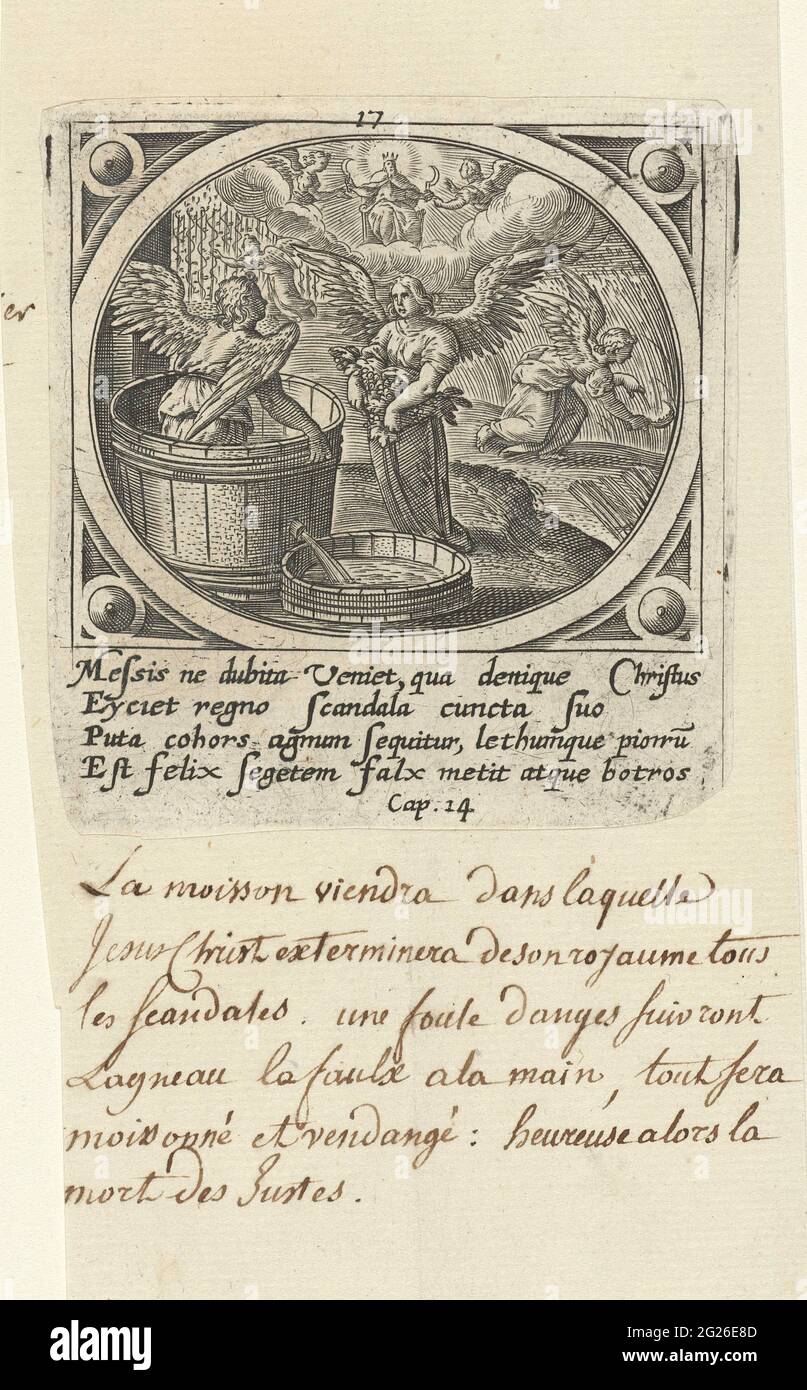 17
ier
Messis ne dubita Veniet, qua denique Christus
Eyciet regno scandala cuncta suo
Puta cohors agnum sequitur, lethumque piorrū
Est felix segetem falx metit atque botros
Cap. 14
La moisson viendra dans laquelle
Jesus Christ exterminera de son royaume tous
les scandales. une foule danges suivront
Lagneau la faulx a la main, tout sera
moissonné et vendangé : heureuse alors la
mort des Justes.
alamy
Image ID: 2G26E8D
www.alamy.com